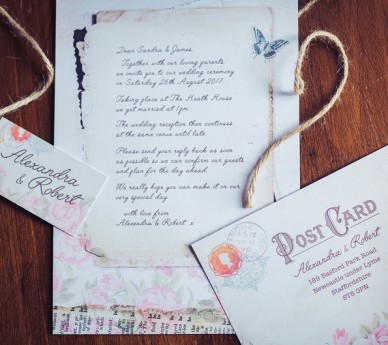 Dear Sandra & James,
Together with our loving parents,
we invite you to our wedding ceremony
on Saturday 26th August 2017.
Taking place at The Heath House
we get married at 1pm.
The wedding reception then continues
at the same venue until late.
Please send your reply back as soon
as possible so we can confirm our guests
and plan for the day ahead.
We really hope you can make it on our
very special day.
with love from
Alexandra & Robert x
Alexandra
& Robert
POST CARD
Alexandra & Robert
189 Basford Park Road
Newcastle under Lyme
Staffordshire
ST5 0PN